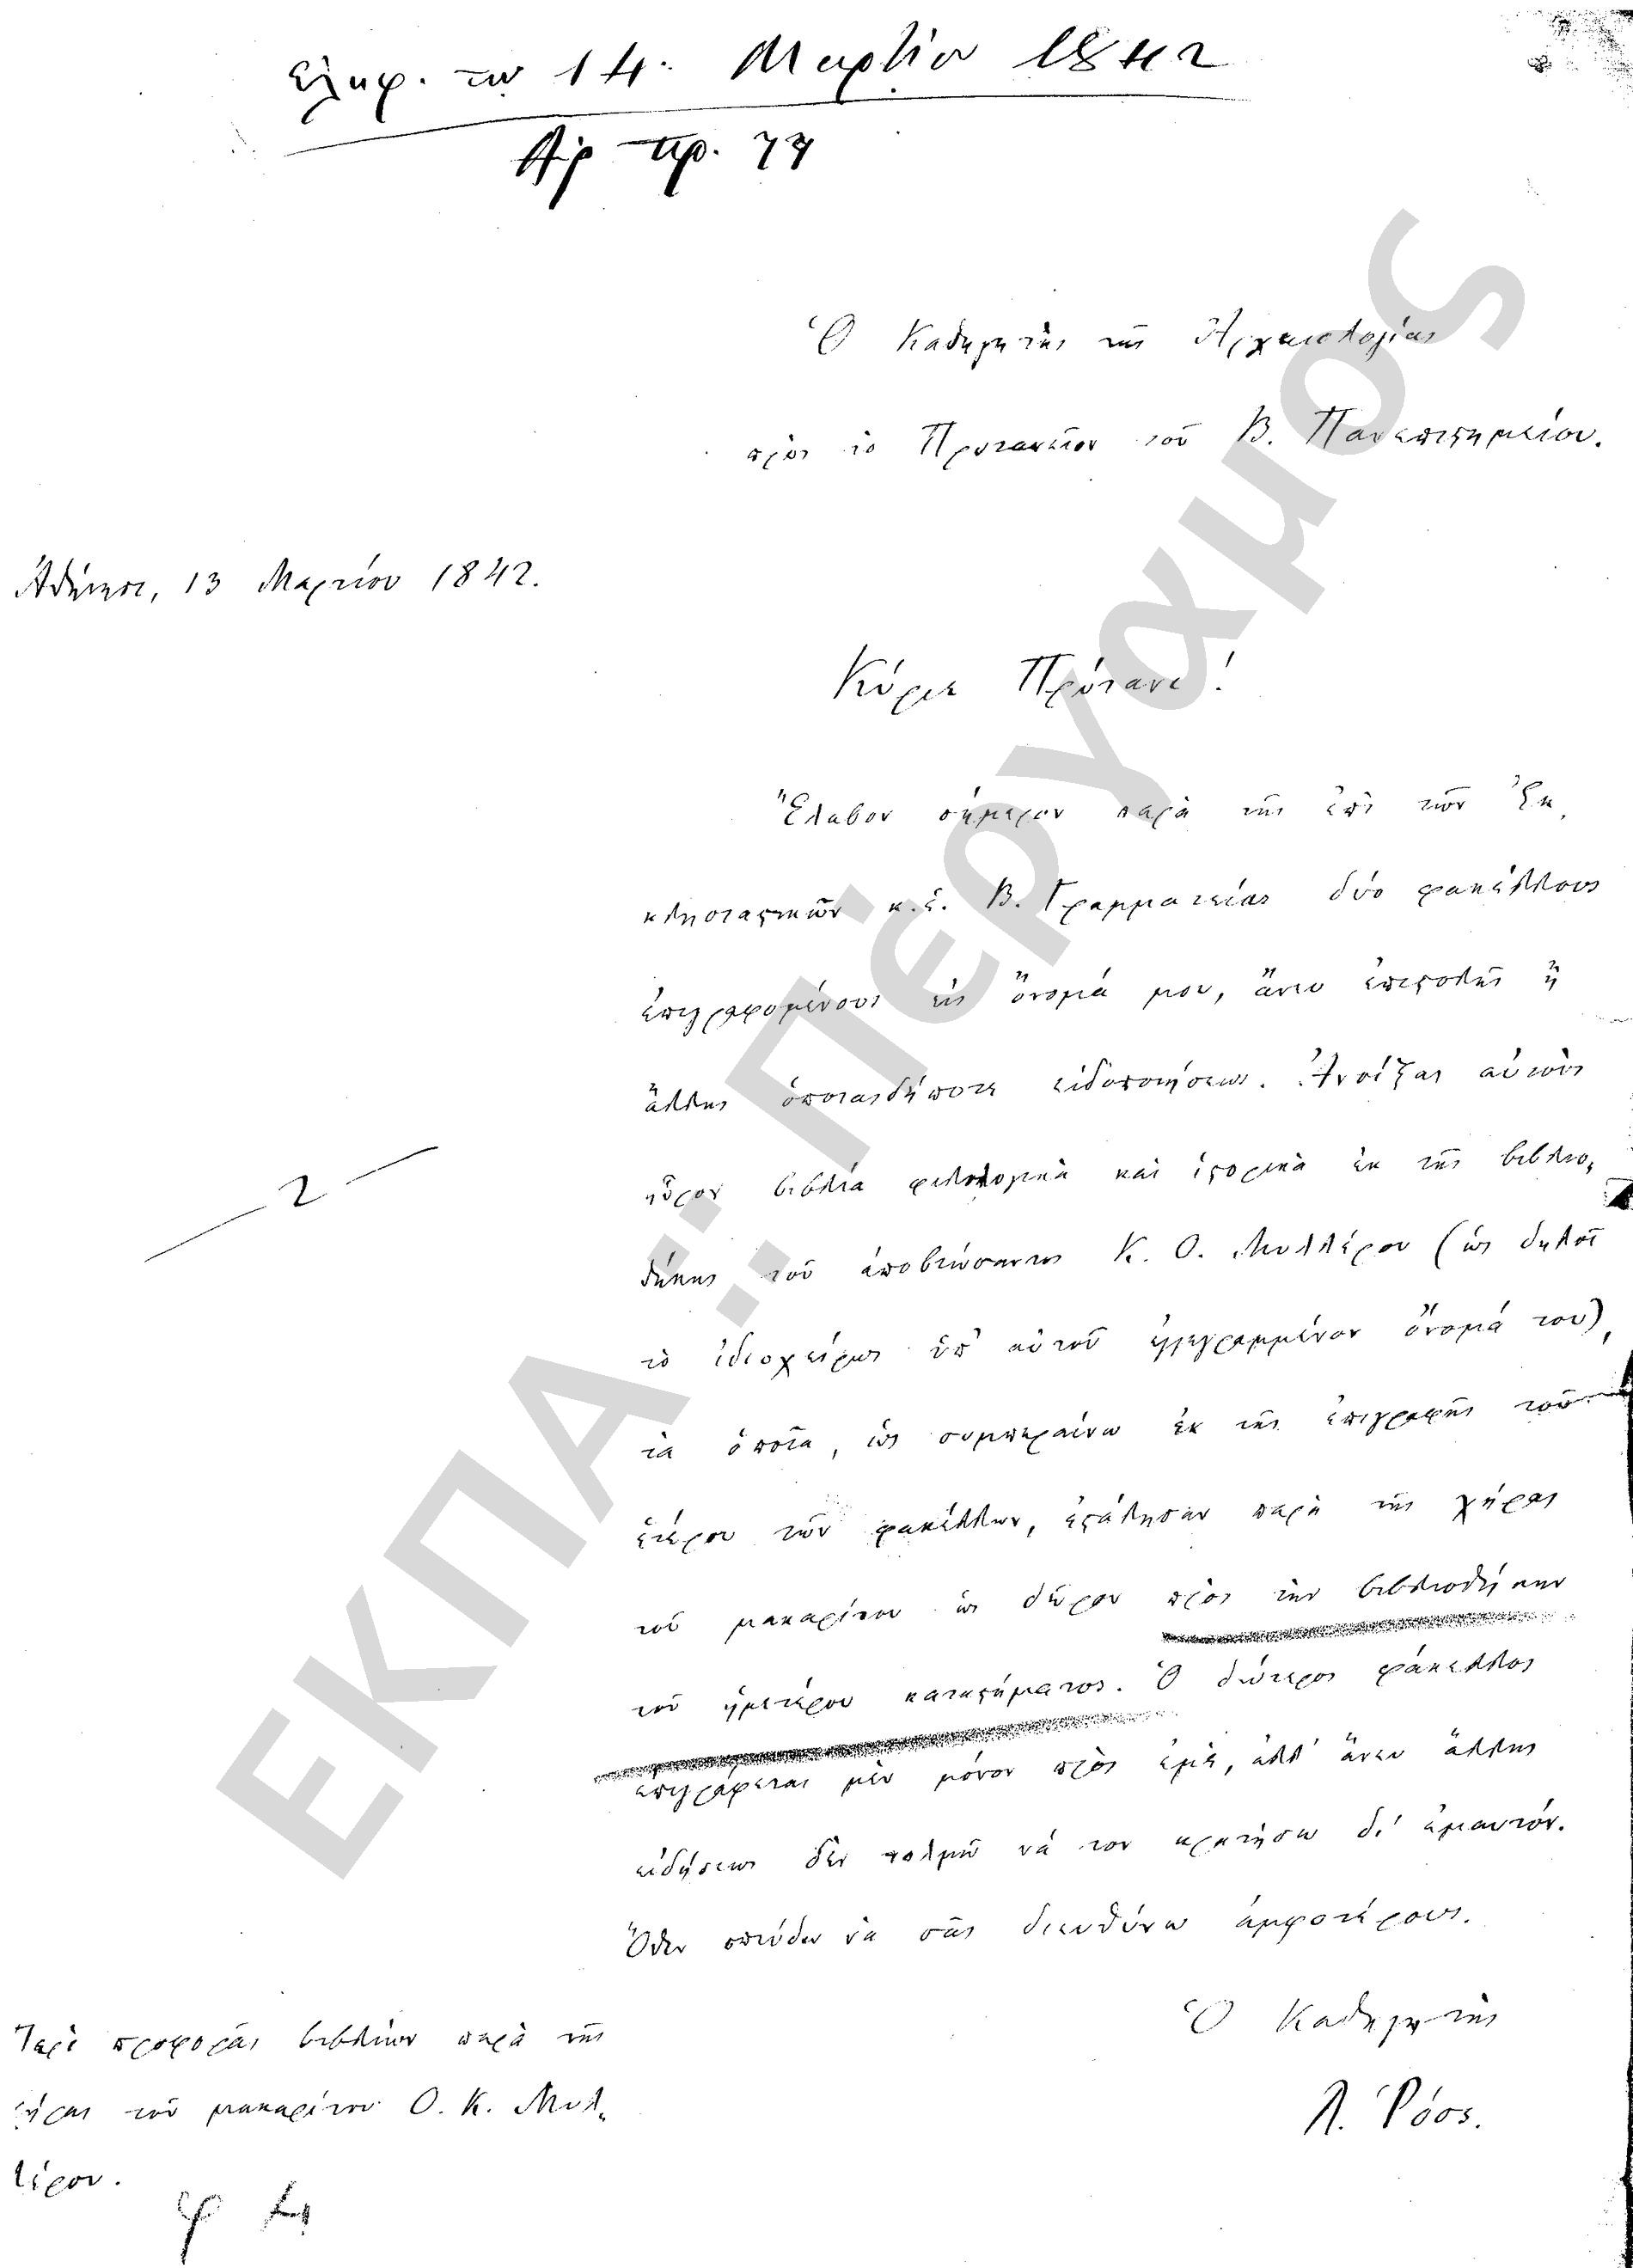 ἐλήφ. τῃ 14. Μαρτίου 1842
Ἀρ πρ. 77
Ὁ Καθηγητὴς τῆς Ἀρχαιολογίας
πρὸς τὸ Πρυτανεῖον τοῦ Β. Πανεπιστημείου.
Ἀθήνησι, 13 Μαρτίου 1842.
Κύριε Πρύτανι!
Ἔλαβον σήμερον παρὰ τῆς ἐπὶ τῶν Ἐκ-
κλησιαστικῶν κ.ἐ. Β. Γραμματείας δύο φακέλλους
ἐπιγραφομένους εἰς ὄνομά μου, ἄνευ ἐπιστολῆς ἢ
ἄλλης ὁποιασδήποτε εἰδοποιήσεως. Ἀνοίξας αὐτοὺς
ηὗρον βιβλία φιλολογικὰ καὶ ἱστορικὰ ἐκ τῆς βιβλιο-
θήκης τοῦ ἀποβιώσαντος Κ. Ο. Μυλλέρου (ὡς δηλοῖ
τὸ ἰδιοχείρως ὑπ' αὐτοῦ ἐγγεγραμμένον ὄνομά του),
τὰ ὁποῖα, ὡς συμπεραίνω ἐκ τῆς ἐπιγραφῆς τοῦ
ἑτέρου τῶν φακέλλων, ἐστάλησαν παρὰ τῆς χήρας
τοῦ μακαρίτου ὡς δῶρον πρὸς τὴν βιβλιοθήκην
τοῦ ἡμετέρου καταστήματος. Ὁ δεύτερος φάκελλος
ἐπιγράφεται μὲν μόνον πρὸς ἐμὲ, ἀλλ' ἄνευ ἄλλης
εἰδήσεως δὲν τολμῶ νά τον κρατήσω δι' ἐμαυτόν.
Ὅθεν σπεύδω νὰ σᾶς διευθύνω ἀμφοτέρους.
Ὁ Καθηγητὴς
Λ. Ῥόσς.
2
Περὶ προσφορᾶς βιβλίων παρὰ τῆς
χήρας τοῦ μακαρίτου Ο. Κ. Μυλ-
λέρου.
ΕΚΠΑ :: Πέργαμος